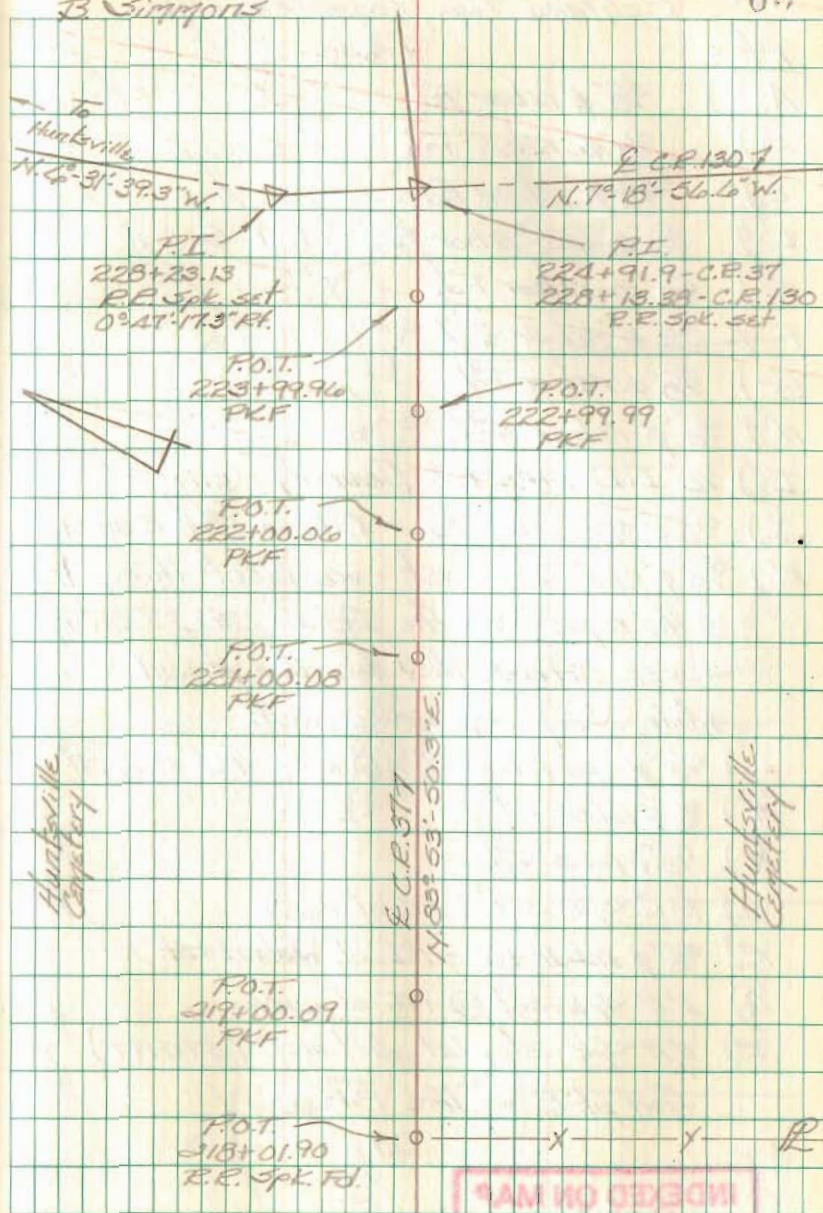 B. Simmons
To
Huntsville
N. 6°-31'-39.3" W.
℄ C.R. 130 7
N. 7°-18'-56.6" W.
P.I.
228+23.13
R.R. Spk. set
0°47'-17.3" Rt.
P.I.
224+91.9 - C.R. 37
228+13.38 - C.R. 130
R.R. Spk. set
P.O.T.
223+99.96
PKF
P.O.T.
222+99.99
PKF
P.O.T.
222+00.06
PKF
P.O.T.
221+00.08
PKF
Huntsville
Cemetery
℄ C.R. 37 7
N. 83°-53'-50.3" E.
Huntsville
Cemetery
P.O.T.
219+00.09
PKF
P.O.T.
218+01.90
R.R. Spk. Fd.
x x ⅊
INDEXED ON MAP